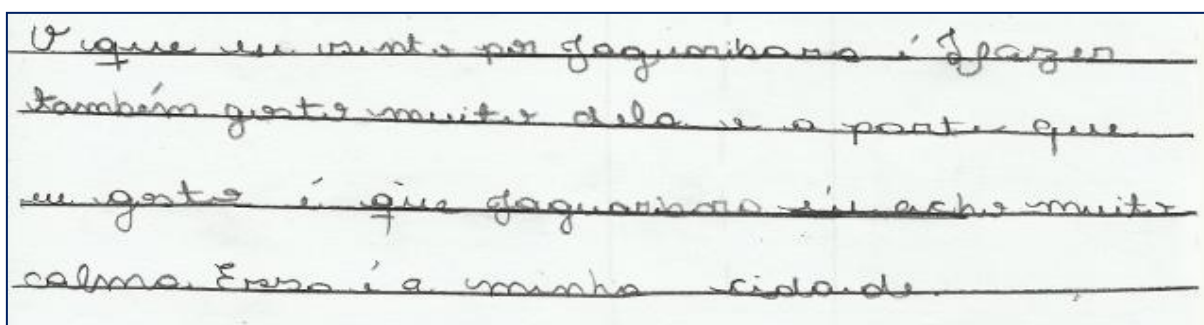 O que eu sinto por Jaguaribara é Prazer
também gosto muito dela e a parte que
eu gosto é que Jaguaribara eu acho muito
calma. Essa é a minha cidade.